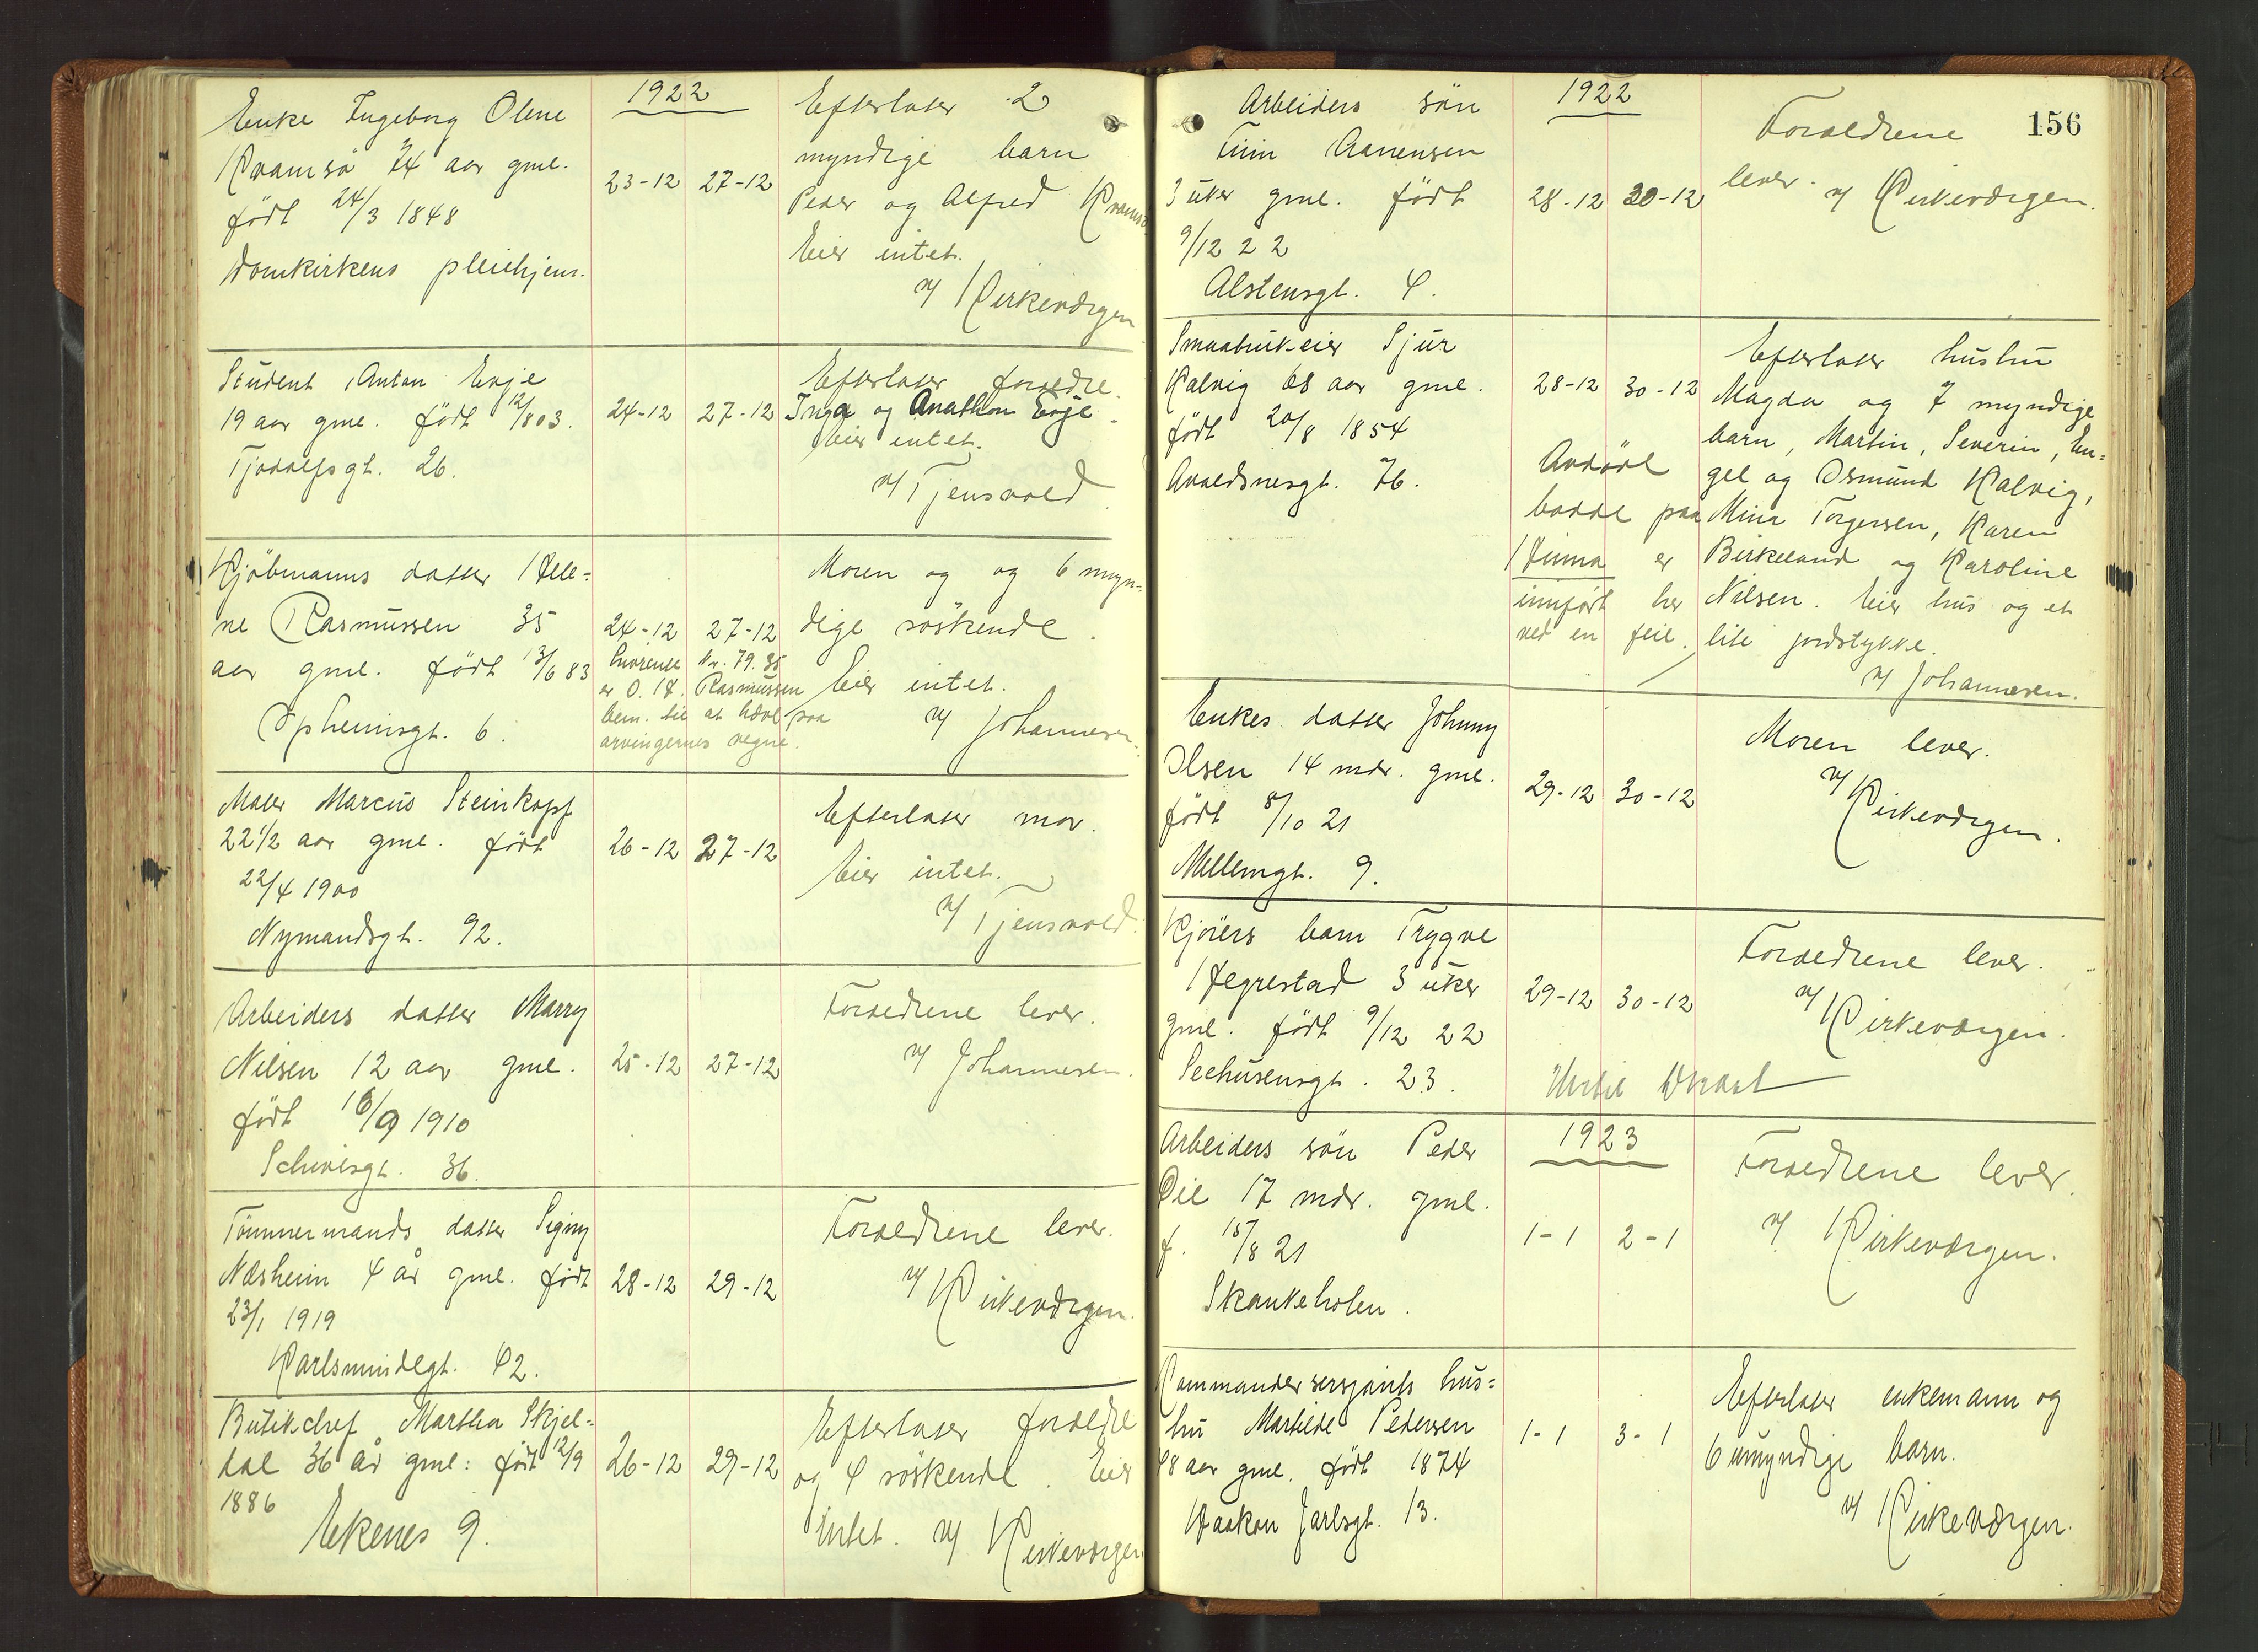 1922
Enke Ingeborg Olene
Kvamsö 74 aar gml.
född 24/3 1848
Domkirkens pleiehjem.
23-12 27-12
Efterlater 2
myndige barn
Peder og Alfred Kvamsö
Eier intet.
v/ Kirkeværgen
Student Anton Evje
19 aar gml. född 12/8 03.
Tjodolfsgt. 26.
24-12 27-12
Efterlater foreldre.
Inga og Anathon Evje.
Eier intet.
v/ Tjensvold
Kjöbmanns datter Hele=
ne Rasmussen 35
aar gml. född 13/6 83
Ophemsgt. 6.
24-12 27-12
er O. 18. Rasmussen
bem. til at hæve paa
arvingernes vegne.
Moren og og 6 myn=
dige söskende.
Eier intet.
v/ Johannesen.
Maler Marcus Steinkopf
22 1/2 aar gml. född
22/4 1900
Nymandsgt. 92.
26-12 27-12
Efterlater mor.
Eier intet.
v/ Tjensvold.
Arbeiders datter Marry
Nilsen 12 aar gml.
född 16/9 1910
Schivesgt. 36.
25-12 27-12
Foreldrene lever.
v/ Johannesen.
Tömmermands datter Signy
Næsheim 4 år gml. född
23/1 1919
Karlsmindegt. 42.
28-12 29-12
Foreldrene lever.
v/ Kirkeværgen.
Butikchef Martha Skjel=
dal 36 år gml: född 12/9
1886
Ekenes 9.
26-12 29-12
Efterlater foreldre
og 4 söskende. Eier
intet. v/ Kirkeværgen
156
1922
Arbeiders sön
Finn Aanensen
3 uker gml. född
9/12 22
Alstensgt. 4.
28-12 30-12
Foreldrene
lever. v/ Kirkeværgen.
Smaabrukeier Sjur
Kalvig 68 aar gml.
född 20/8 1854
Avaldsnesgt. 76.
28-12 30-12
Avdöde
bodde paa
Hinna er
innfört her
ved en feil.
Efterlater hustru
Magda og 7 myndige
barn, Martin, Severin, En=
gel og Osmund Kalvig,
Mina Torgersen, Karen
Birkeland og Karoline
Nilsen. Eier hus og et
lite jordstykke.
v/ Johannesen.
Enkes datter Johnny
Olsen 14 mdr. gml.
född 8/10 21
Mellemgt. 9.
29-12 30-12
Moren lever.
v/ Kirkeværgen.
Kjörers barn Trygve
Hegrestad 3 uker
gml. född 9/12 22
Seehusensgt. 23.
29-12 30-12
Foreldrene lever.
v/ Kirkeværgen.
1923
Arbeiders sön Peder
Oie 17 mdr. gml.
f. 15/8 21
Skankeholen.
1-1 2-1
Foreldrene lever.
v/ Kirkeværgen.
Kommandersersjants hus=
tru Mathilde Pedersen
48 aar gml. född 1874
Haakon Jarlsgt. 13.
1-1 3-1
Efterlater enkemann og
6 umyndige barn.
v/ Kirkeværgen.